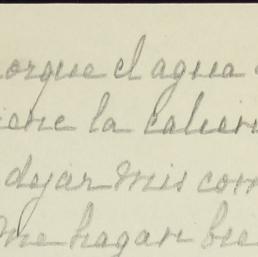 orque el agua
iene la calien
dejar mis com
me hagan bie